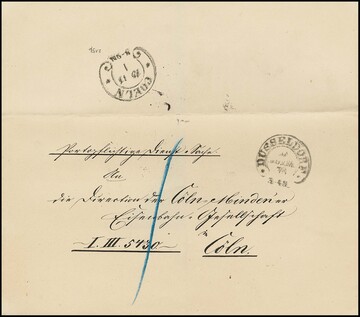 COELN
DÜSSELDORF
Portopflichtige Dienst-Sache.
An
die Direction der Cöln-Mindener
Eisenbahn-Gesellschaft
I. III. 5730 Cöln.